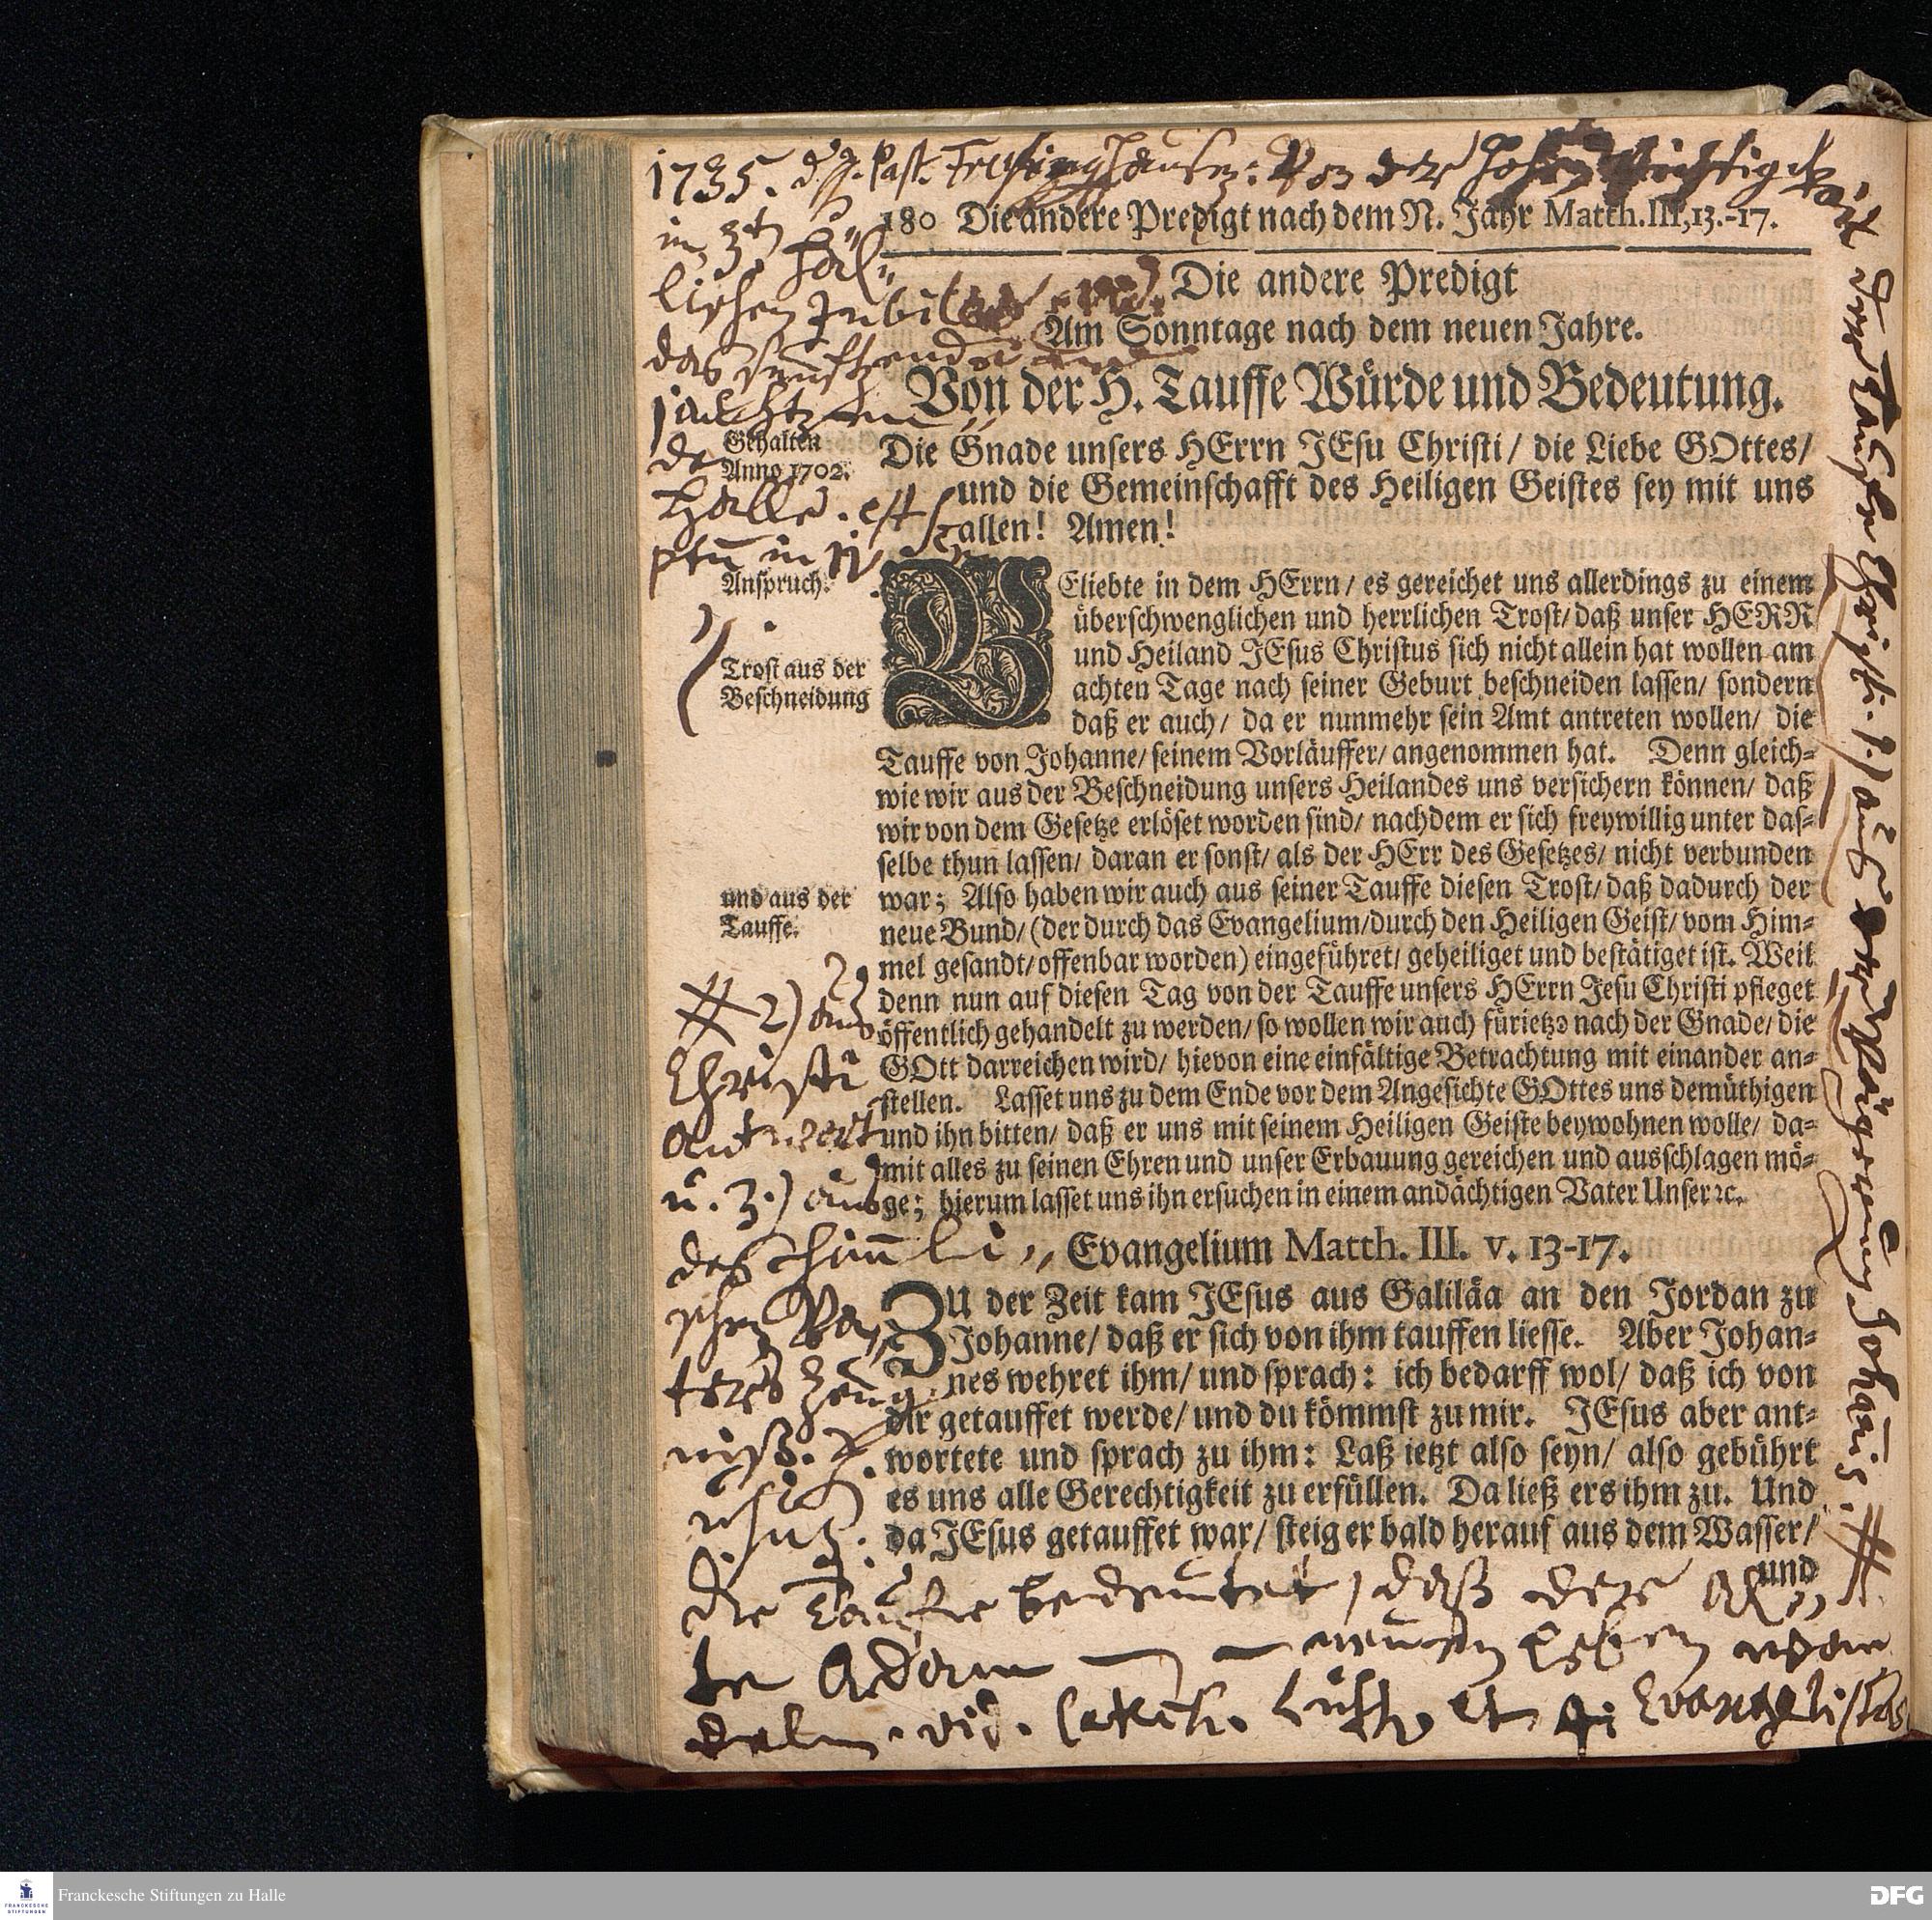 1735. d. 9. Past. Freylinghausen: Von der hohen Wichtigkeit
180 Die andere Predigt nach dem N. Jahr Matth. III, 13.-17.
in 3t
lichen Jubi
das
da
Halle. est
in
Die andere Predigt
Am Sonntage nach dem neuen Jahre.
Von der H. Tauffe Würde und Bedeutung.
Gehalten
Anno 1702.
Die Gnade unsers HErrn JEsu Christi/ die Liebe GOttes/
und die Gemeinschafft des Heiligen Geistes sey mit uns
allen! Amen!
Anspruch.
GEliebte in dem HErrn/ es gereichet uns allerdings zu einem
überschwenglichen und herrlichen Trost/ daß unser HERR
und Heiland JEsus Christus sich nicht allein hat wollen am
achten Tage nach seiner Geburt beschneiden lassen/ sondern
daß er auch/ da er nunmehr sein Amt antreten wollen/ die
Trost aus der
Beschneidung
Tauffe von Johanne/ seinem Vorläuffer/ angenommen hat. Denn gleich-
wie wir aus der Beschneidung unsers Heilandes uns versichern können/ daß
wir von dem Gesetze erlöset worden sind/ nachdem er sich freywillig unter das-
selbe thun lassen/ daran er sonst/ als der HErr des Gesetzes/ nicht verbunden
war; Also haben wir auch aus seiner Tauffe diesen Trost/ daß dadurch der
neue Bund/ (der durch das Evangelium/ durch den Heiligen Geist/ vom Him-
mel gesandt/ offenbar worden) eingeführet/ geheiliget und bestätiget ist. Weil
denn nun auf diesen Tag von der Tauffe unsers HErrn Jesu Christi pfleget
öffentlich gehandelt zu werden/ so wollen wir auch fürietzo nach der Gnade/ die
GOtt darreichen wird/ hievon eine einfältige Betrachtung mit einander an-
stellen. Lasset uns zu dem Ende vor dem Angesichte GOttes uns demüthigen
und ihn bitten/ daß er uns mit seinem Heiligen Geiste beywohnen wolle/ da-
mit alles zu seinen Ehren und unser Erbauung gereichen und ausschlagen mö-
ge; hierum lasset uns ihn ersuchen in einem andächtigen Vater Unser ꝛc.
und aus der
Tauffe.
Evangelium Matth. III. v. 13-17.
ZU der Zeit kam JEsus aus Galiläa an den Jordan zu
Johanne/ daß er sich von ihm tauffen liesse. Aber Johan-
nes wehret ihm/ und sprach: ich bedarff wol/ daß ich von
dir getauffet werde/ und du kömmst zu mir. JEsus aber ant-
wortete und sprach zu ihm: Laß ietzt also seyn/ also gebührt
es uns alle Gerechtigkeit zu erfüllen. Da ließ ers ihm zu. Und
da JEsus getauffet war/ steig er bald herauf aus dem Wasser/
und
der Tauffe Christi. 1.) auß der Weigerung Johannis. #
# 2) aus
Christi
Antwort
u. 3.) aus
des himli„
schen Va„
ters Zeug
niß.
die Tauffe bedeutet, daß der Al„
te Adam — — neuen Leben wan
deln. vid. Catech. Luth. et 4 Evangelistas
Franckesche Stiftungen zu Halle
FRANCKESCHE
STIFTUNGEN
DFG